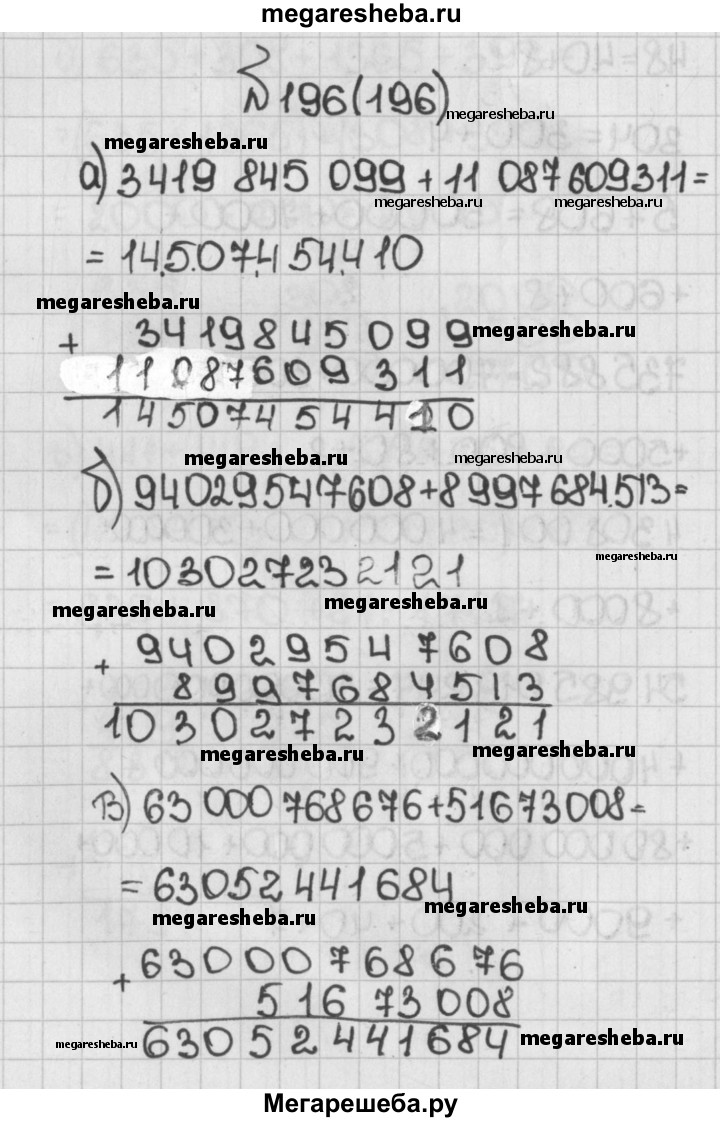 megaresheba.ru
№ 196(196)
megaresheba.ru
megaresheba.ru
а) 3419 845 099 + 11 087609311 =
megaresheba.ru megaresheba.ru
= 14.5.07.4 54.4 10
megaresheba.ru
+ 3419845099 megaresheba.ru
11087609311
14507454410
megaresheba.ru megaresheba.ru
б) 94029547608+8997684.513=
= 103027232121 megaresheba.ru
megaresheba.ru megaresheba.ru
+ 94029547608
8997684513
103027232121
megaresheba.ru megaresheba.ru
в) 63 000 768676+51673008=
= 63052441684
megaresheba.ru megaresheba.ru
+ 63000768676
51673008
megaresheba.ru 63052441684 megaresheba.ru
Мегарешеба.ру